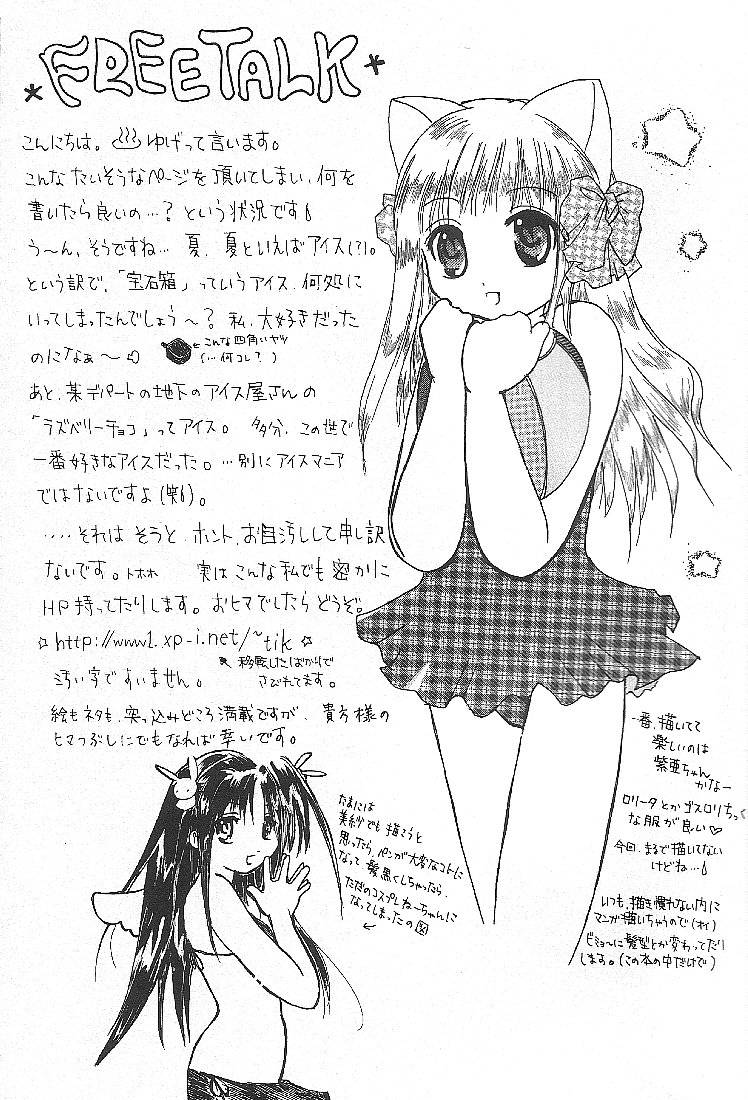 FREE TALK
こんにちは。♨ゆげって言います。
こんなたいそうなページを頂いてしまい、何を
書いたら良いの…？という状況です
う〜ん、そうですね…夏、夏といえばアイス(?)。
という訳で、「宝石箱」っていうアイス、何処に
いってしまったんでしょう〜？私、大好きだった
のになぁ〜
←こんな四角いヤツ
(…何コレ？)
あと、某デパートの地下のアイス屋さんの
「ラズベリーチョコ」ってアイス。多分、この世で
一番好きなアイスだった。…別にアイスマニア
ではないですよ(笑)。
‥‥それはそうと、ホント、お目汚しして申し訳
ないです。トホホ 実はこんな私でも密かに
HP持ってたりします。おヒマでしたらどうぞ。
☆http://www1.xp-i.net/~tik☆
移転したばかりで
さびれてます。
汚い字ですいません。
絵もネタも、突っ込みどころ満載ですが、貴方様の
ヒマつぶしにでもなれば幸いです。
たまには
美紗でも描こうと
思ったら、ペンが大変なコトに
なって、髪黒くしちゃったら、
ただのコスプレねーちゃんに
なってしまったの図
一番、描いてて
楽しいのは
紫亜ちゃん
かなー
ロリータとかゴスロリちっく
な服が良い♡
今回、まるで描いてない
けどね…
いつも、描き慣れない内に
マンガ描いちゃうので(オイ)
ビミョーに髪型とか変わってたり
します。(この本の中だけで)